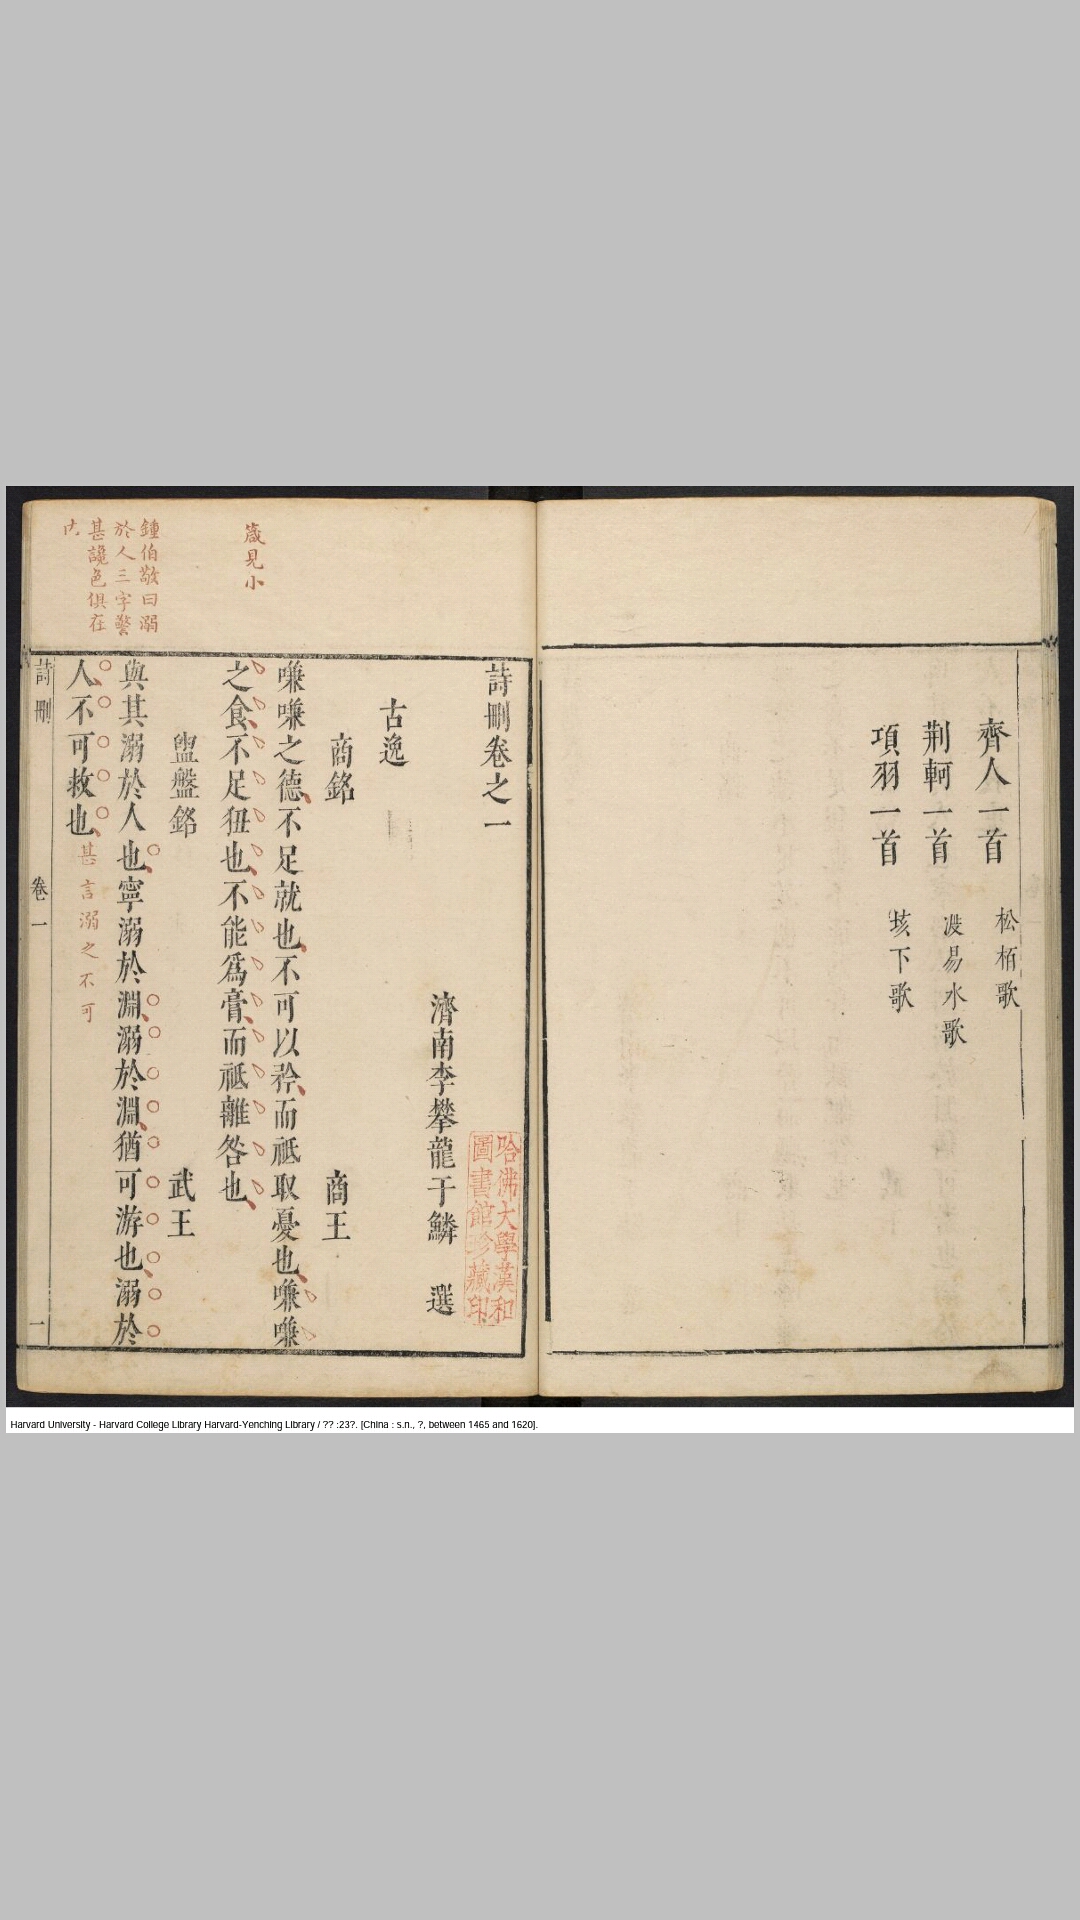 齊人一首 松栢歌
荆軻一首 渡易水歌
項羽一首 垓下歌
詩刪卷之一
濟南李攀龍于鱗 選
哈佛大學漢和
圖書館珍藏印
古逸
商銘 商王
嗛嗛之德不足就也不可以矜而祗取憂也嗛嗛
之食不足狃也不能爲膏而祗離咎也
盥盤銘 武王
與其溺於人也寧溺於淵溺於淵猶可游也溺於
人不可救也 甚言溺之不可
箴見小
鍾伯敬曰溺
於人三字警
甚讒色俱在
内
詩刪 卷一 一
Harvard University - Harvard College Library Harvard-Yenching Library / ?? :23?. [China : s.n., ?, between 1465 and 1620].